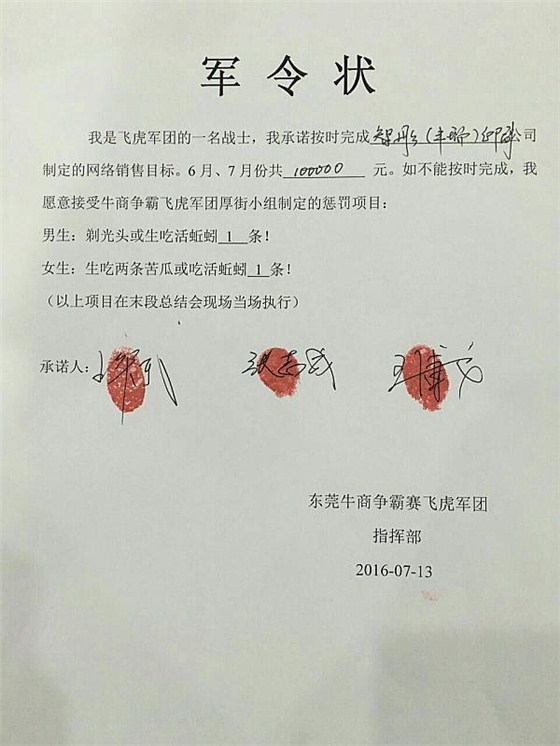 军令状
我是飞虎军团的一名战士，我承诺按时完成 公司
制定的网络销售目标。6月、7月份共 100000 元。如不能按时完成，我
愿意接受牛商争霸飞虎军团厚街小组制定的惩罚项目：
男生：剃光头或生吃活蚯蚓 1 条！
女生：生吃两条苦瓜或吃活蚯蚓 1 条！
（以上项目在末段总结会现场当场执行）
承诺人： 张志成
东莞牛商争霸赛飞虎军团
指挥部
2016-07-13